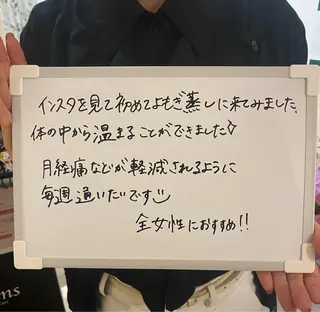 インスタを見て初めてよもぎ蒸しに来てみました。
体の中から温まることができました♡
月経痛などが軽減されるように
毎週通いたいです☺
全女性におすすめ!!
ns